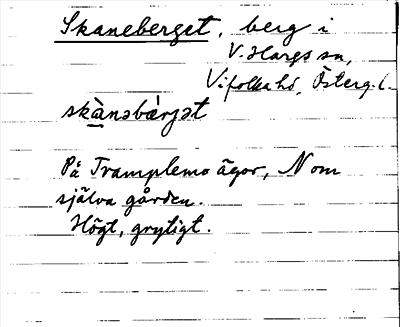 Skaneberget, berg i
V. Hargs sn,
Vifolka hd, Österg. l.
skànəbàrjət
På Tramplemo ägor, N om
själva gården.
Högt, grytigt.